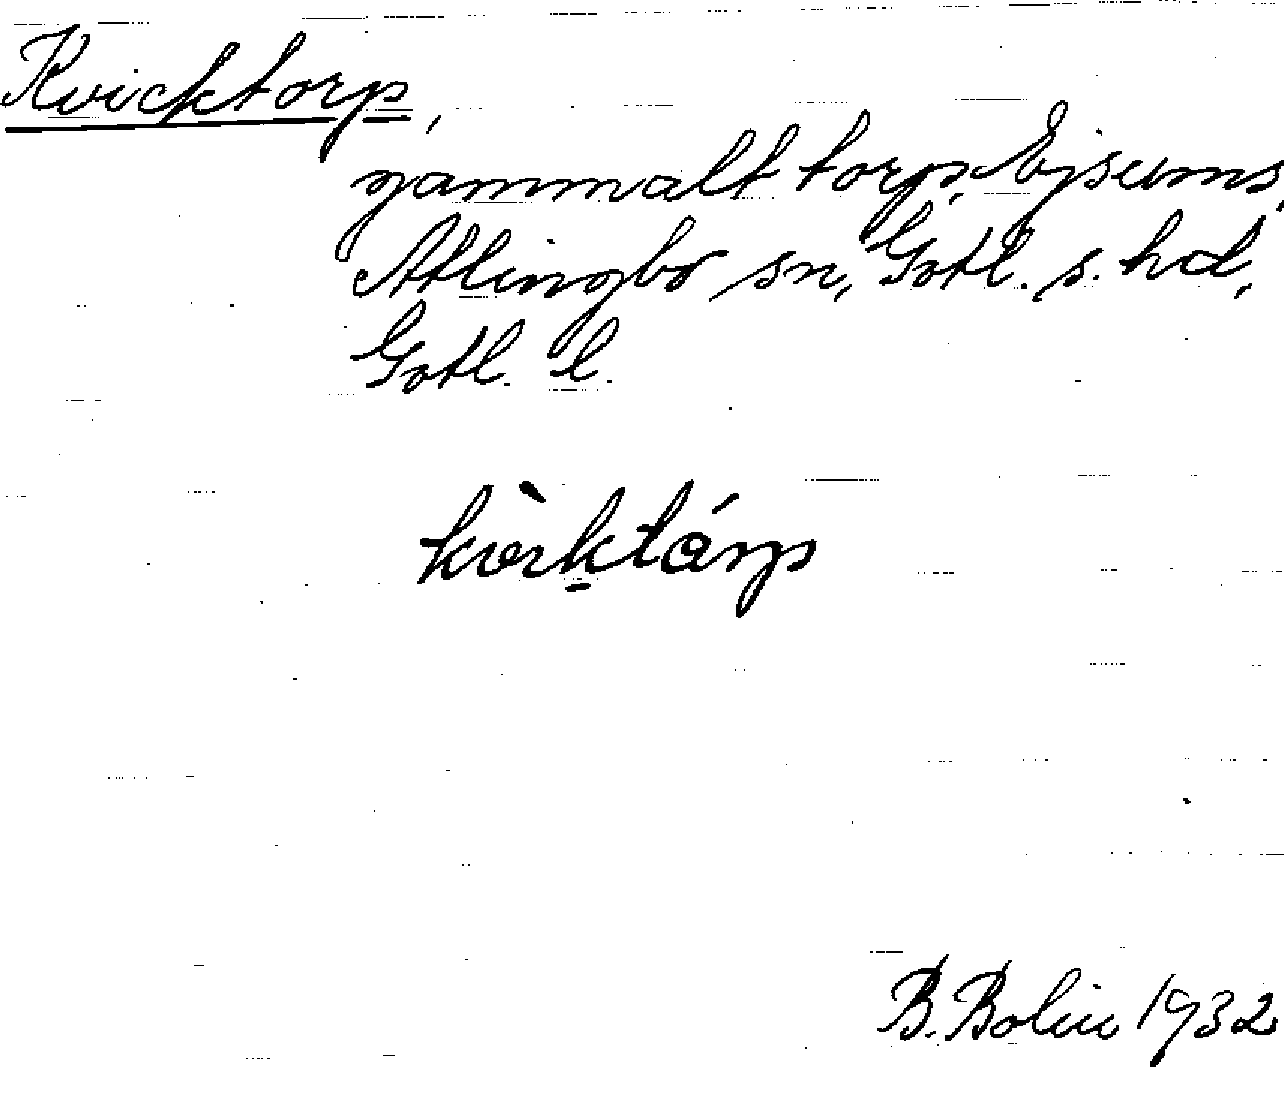 Kvicktorp,
gammalt torp, Ejsums,
Atlingbo sn, Gotl. s. hd,
Gotl. l.
B. Bolin 1932